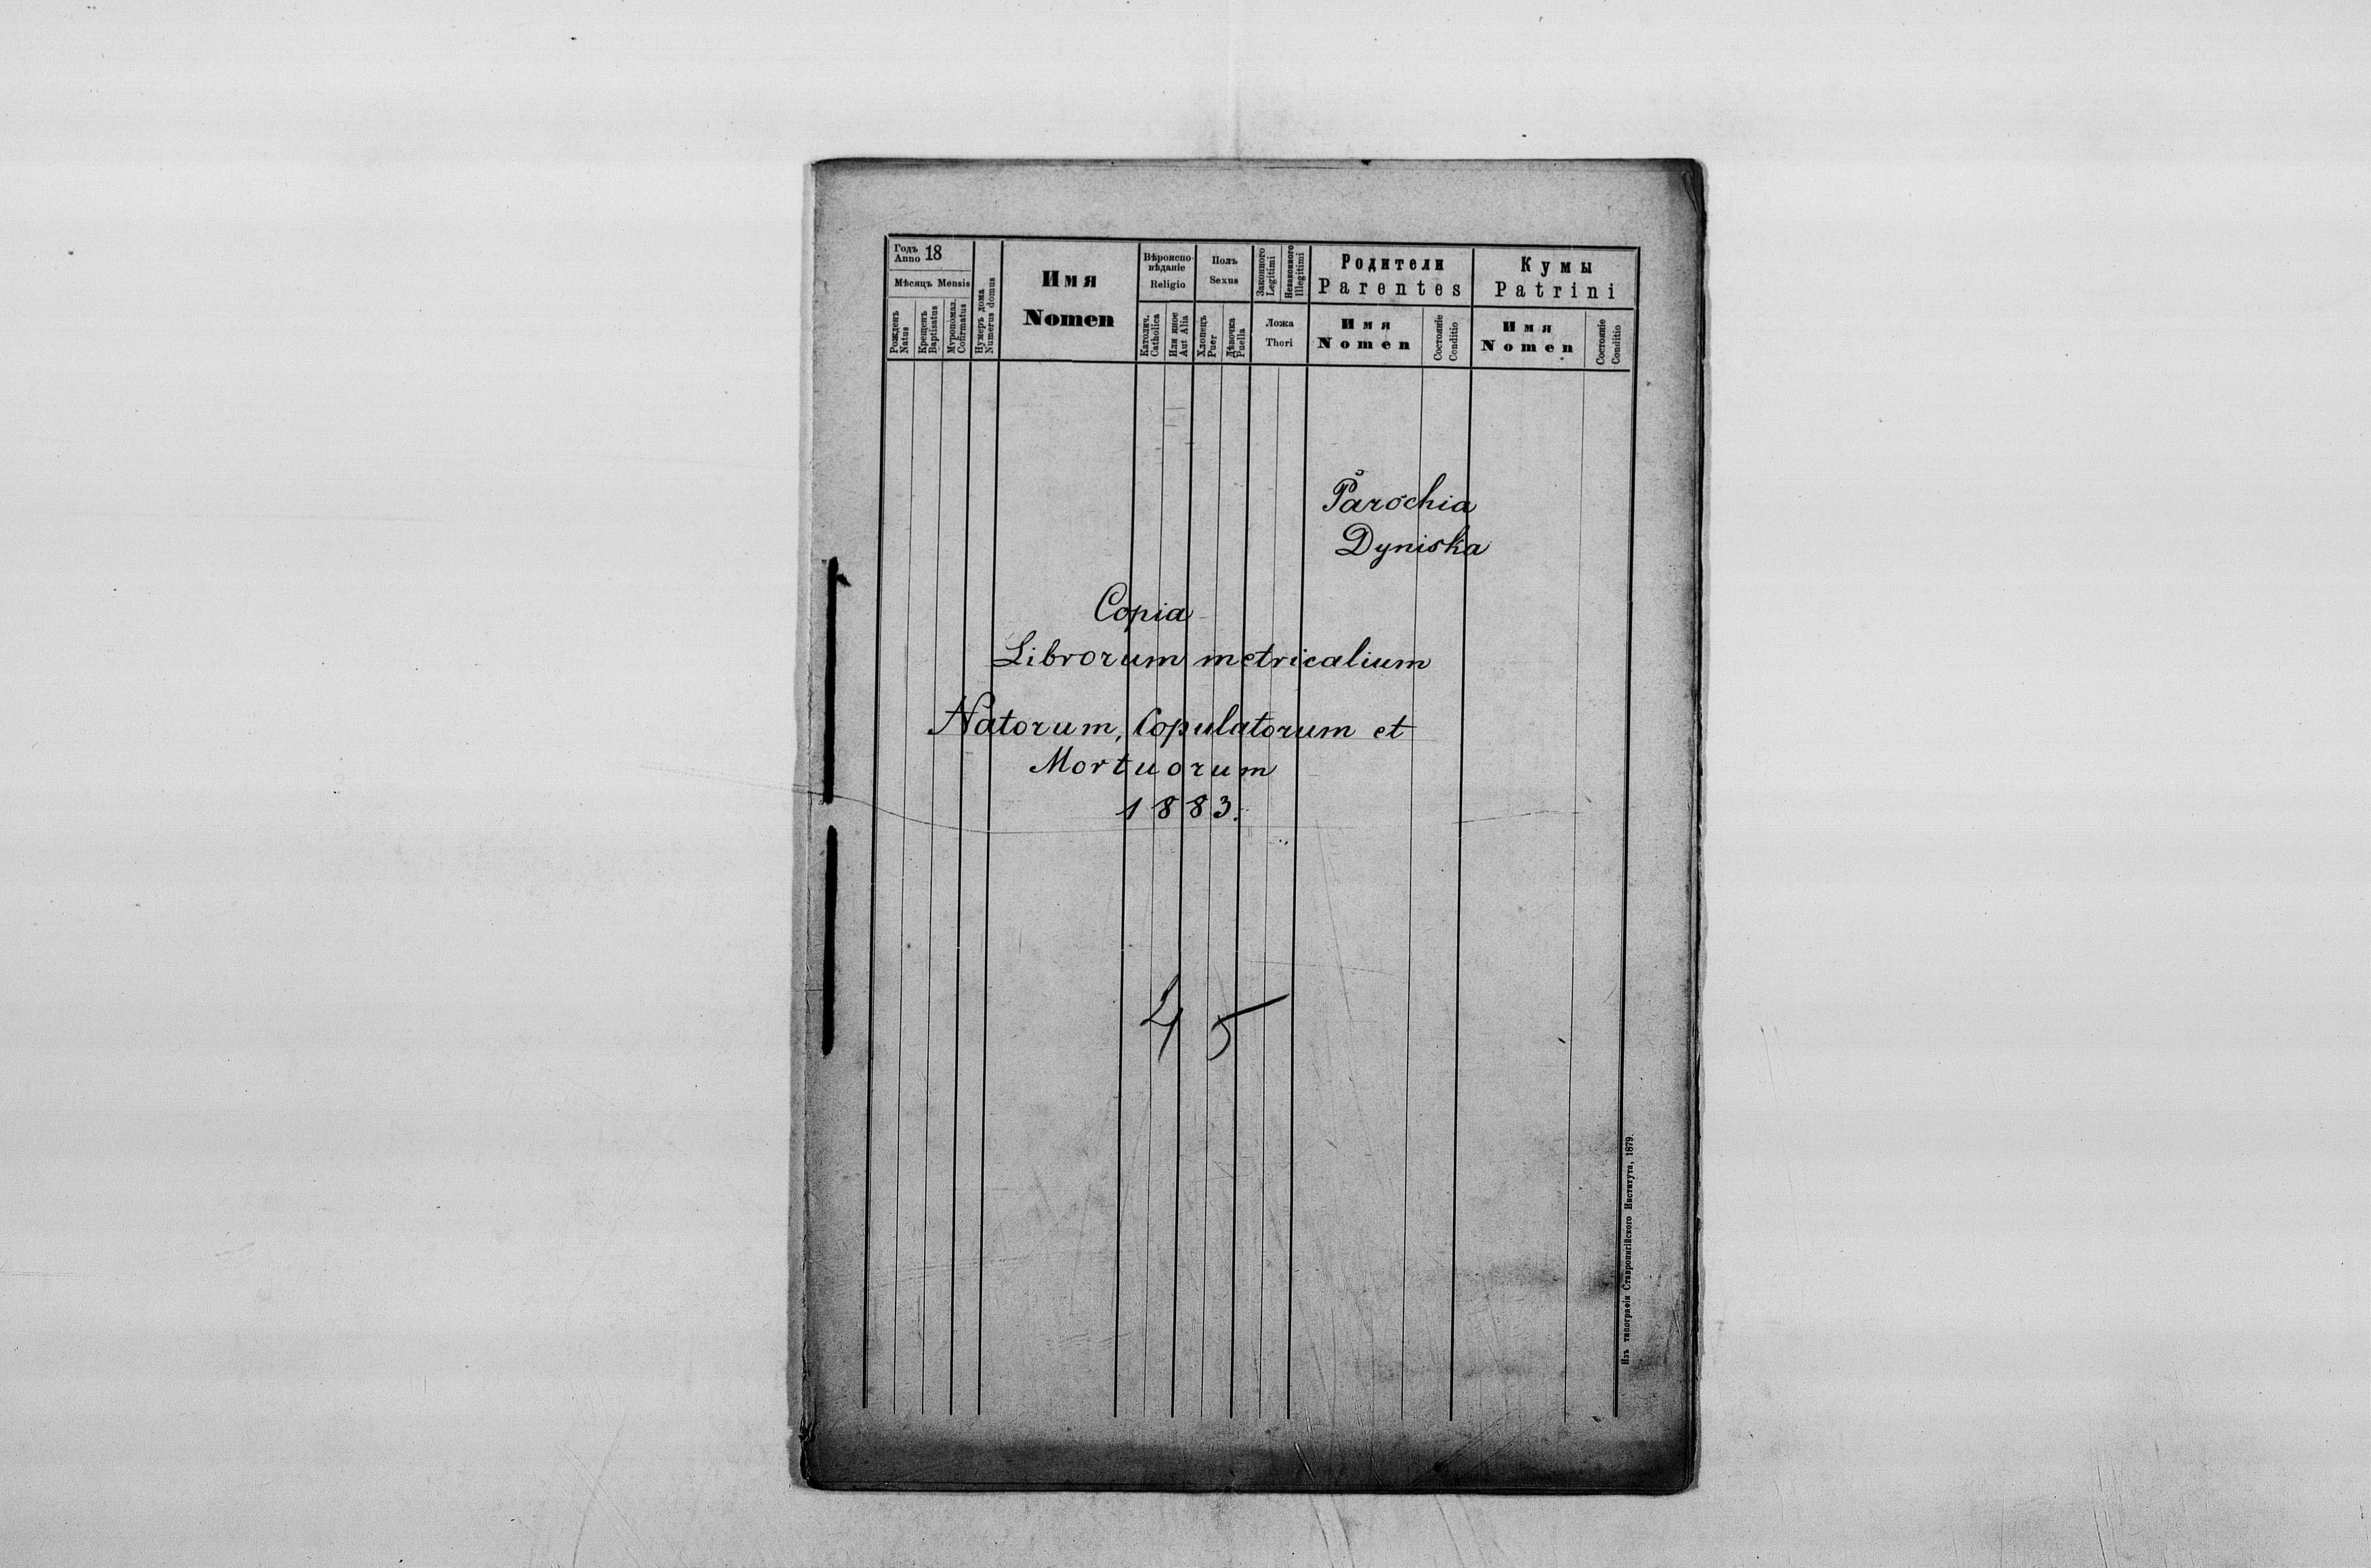 Годъ
Anno 18
Мѣсяцъ Mensis
Рожденъ
Natus
Крещенъ
Baptisatus
Мѵропомаз.
Cofirmatus
Нумеръ дома
Numerus domus
Имя
Nomen
Вѣроиспо-
вѣданіе
Religio
Католич.
Catholica
Или иное
Aut Alia
Полъ
Sexus
Хлопецъ
Puer
Дѣвочка
Puella
Законного
Legitimi
Незаконного
Illegitimi
Ложа
Thori
Родители
Parentes
Имя
Nomen
Состояніе
Conditio
Кумы
Patrini
Имя
Nomen
Состояніе
Conditio
Parochia
Dyniska
Copia
Librorum metricalium
Natorum, Copulatorum et
Mortuorum
1883.
45
Изъ типографіи Ставропигійского Института, 1879.